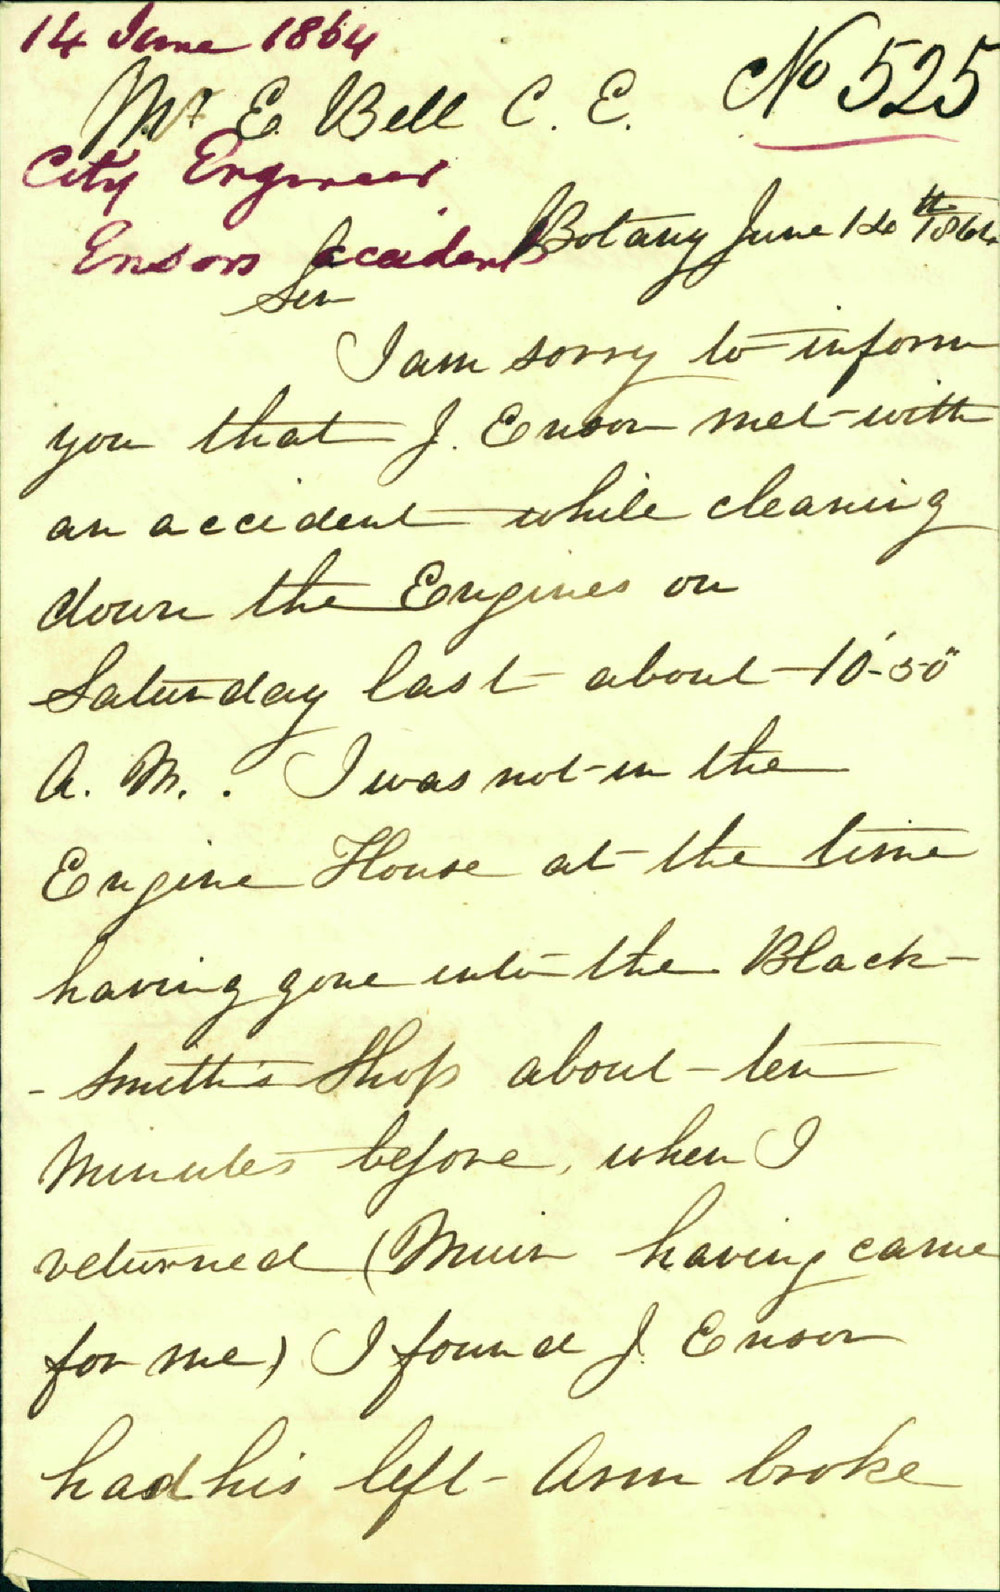 14 June 1864
Mr E. Bell C. E. No 525
City Engineer
Ensors Accident Botany June 14th 1864
Sir
I am sorry to inform
you that J. Ensor met with
an accident while cleaning
down the Engines on
Saturday last about 10'-30"
A. M. . I was not in the
Engine House at the time
having gone into the Black-
- smith's Shop about ten
Minutes before, when I
returned (Muir having came
for me) I found J. Ensor
had his left Arm broke